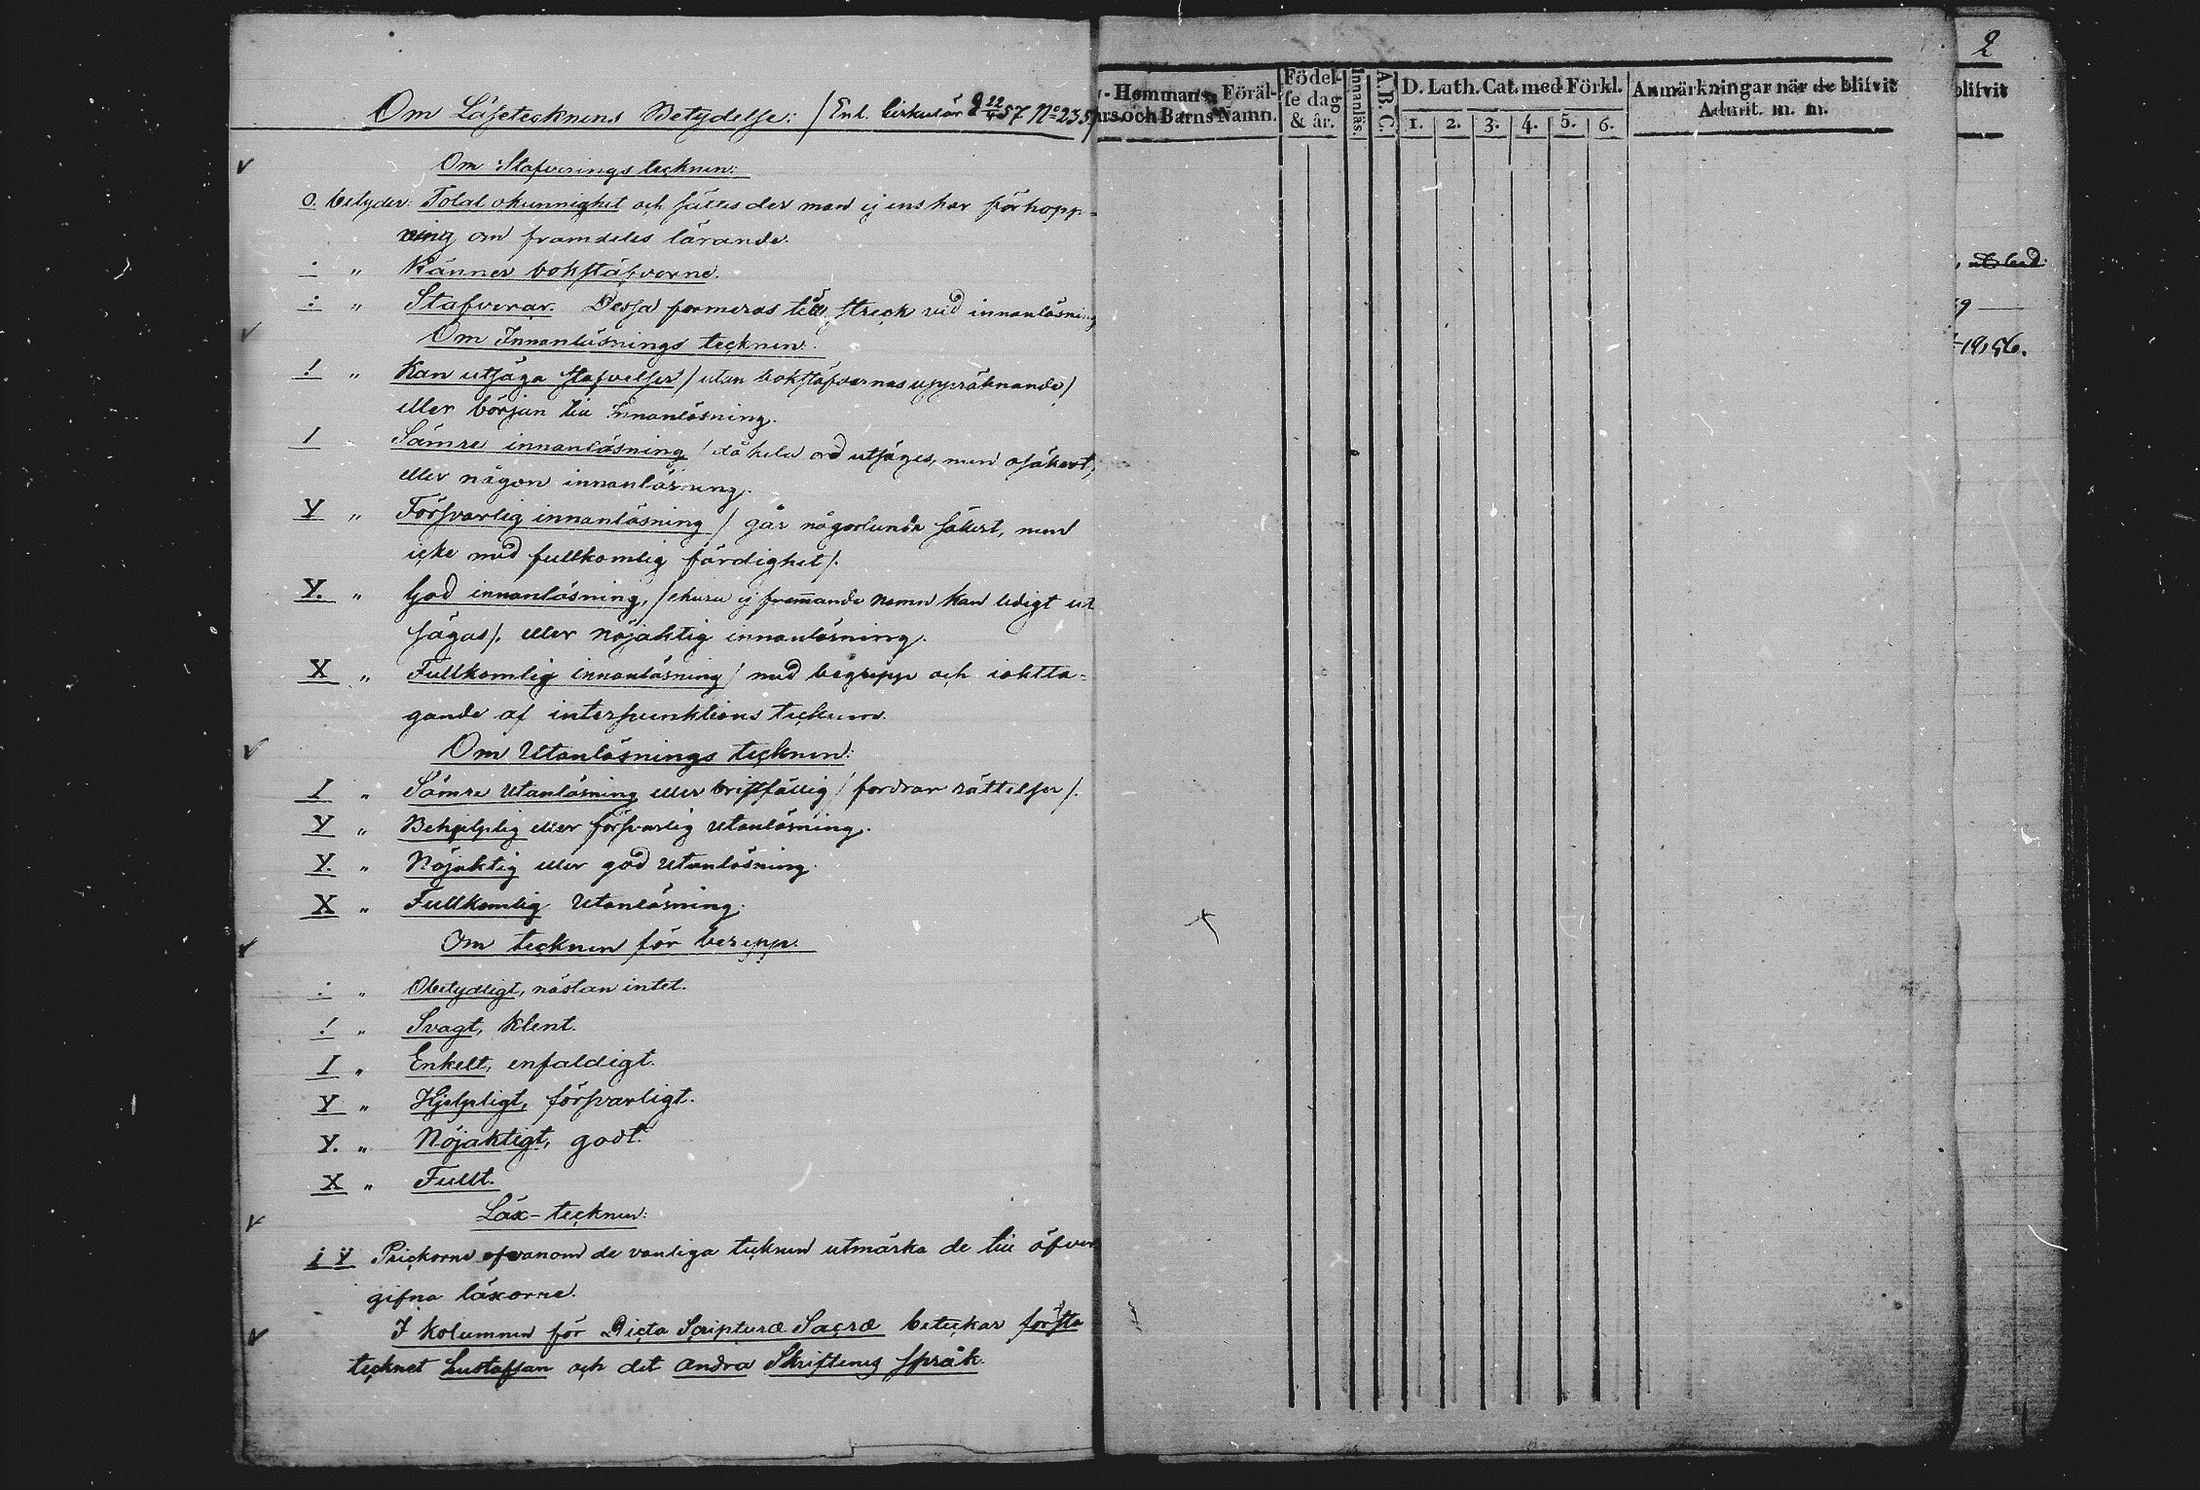 Om Läsetecknens Betydelse: / Enl. Cirkulär d 22/4 57 No 235/
Om Stafverings tecknen:
O. betyder Total okunnighet och sättes der man ej ens har förhopp-
ning om framdeles lärande.
· " Känner bokstäfverne.
: " Stafverar. Dessa formeras till streck vid innanläsning
Om Innanläsnings tecknen:
! " Kan utsäga stafvelser / utan bokstäfvernas uppräknande /
eller början till Innanläsning.
I Sämre innanläsning / då hela ord utsäges, men osäkert,
eller någon innanläsning.
Y " Försvarlig innanläsning / går någorlunda säkert, men
icke med fullkomlig färdighet /.
Y. " God innanläsning, / ehuru ej främmande namn kan ledigt ut
sägas /. eller nöjaktig innanläsning.
X " Fullkomlig innanläsning / med begrepp och iaktta-
gande af interpunktions tecknen.
Om Utanläsnings tecknen:
I " Sämre Utanläsning eller bristfällig / fordrar rättelser /.
Y " Behjelplig eller försvarlig Utanläsning.
Y. " Nöjaktig eller god Utanläsning.
X " Fullkomlig Utanläsning.
Om tecknen för
: " Obetydligt, nästan intet.
! " Svagt, klent.
I " Enkelt, enfaldigt.
Y " Hjelpligt, försvarligt.
Y. " Nöjaktigt, godt.
X " Fullt.
Läx-tecknen:
i Ÿ Prickorne ofvanom de vanliga tecknen utmärka de till öfver
gifna läxorne.
I kolumnen för Dicta Scripturæ Sacræ betecknar första
tecknet Hustaflan och det andra Skriftens språk.
- Hemmans, Föräl-
ars och Barns Namn.
Födel-
se dag
& år.
Innanläs.
A.B.C.
D. Luth. Cat. med Förkl.
1. 2. 3. 4. 5. 6.
Anmärkningar när de blifvit
Admit. m. m.
2
blifvit